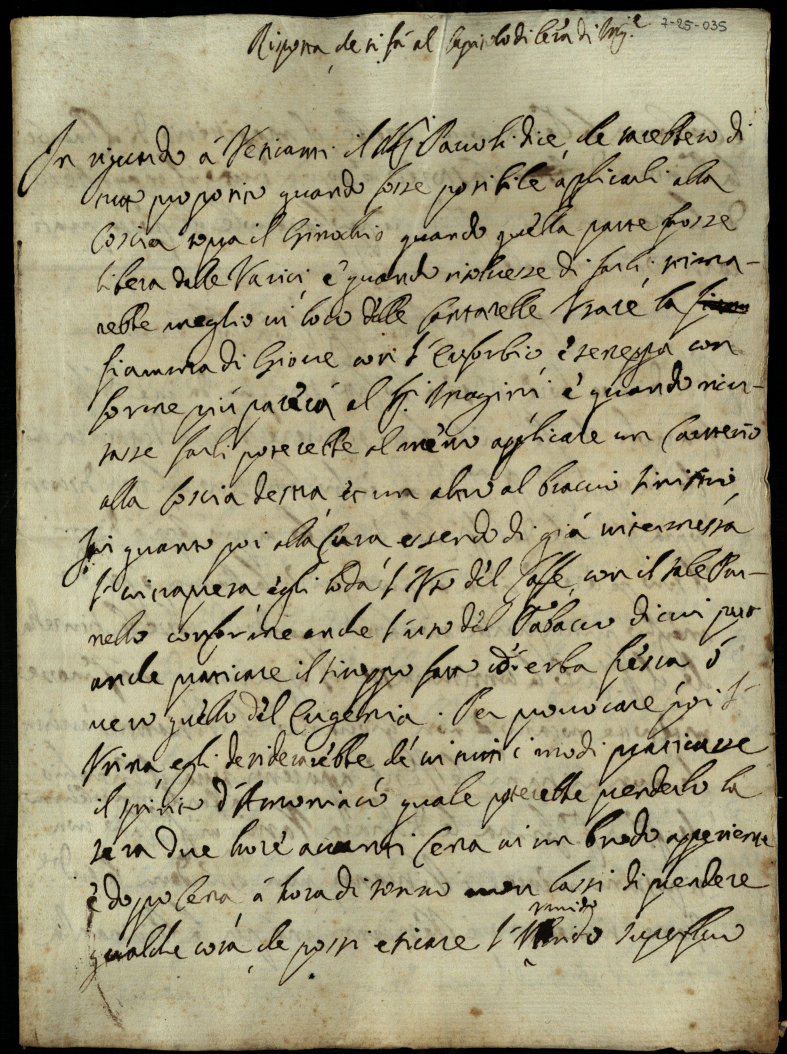 7-25-035
Risposta che si fà al Capitolo di lettera di
In riguardo à Vesicanti il Pauoli dice, che sarebbero di
tutto proposito quando fosse posibile applicarli alla
Coscia sopra il Ginochio quando quella parte fosse
libera dalle Varici, è quando risoluesse di farli, stima-
rebbe meglio in loco delle Cantarelle Vsare la
fiamma di Gioue con l'Euforbio è senappa con
forme più parerà al Magini è quando ricu-
sasse farli poterebbe almeno applicare un Cauterio
alla Coscia destra et un altro al braccio sinistro
In quanto poi alla Cura essendo di già intermessa
l' intrapresa egli loda l'Vso del Caffè, con il sale
conforme anche l'uso del Tabacco di cui può
anche praticare il siroppo fatto erba fresca ò
uero quello del . Per prouocare poi l'
Vrina egli desiderarebbe che in tutti i modi praticasse
il spirito d'Armoniacò quale poterebbe prenderlo la
sera due hore auanti Cena in un brodo apperiente
è doppo Cena à hora di sonno non lassi di prendere
umido
qualche cosa che possi esicare l' superfluo